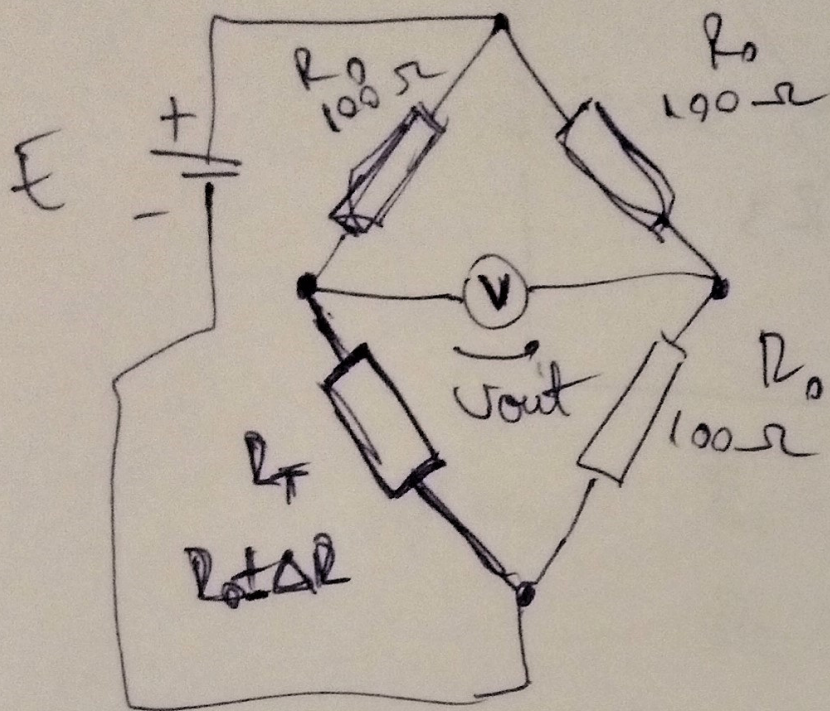 R0
100 Ω
R0
100 Ω
+
E
-
V
Vout
R0
100 Ω
RT
R0 ± ΔR